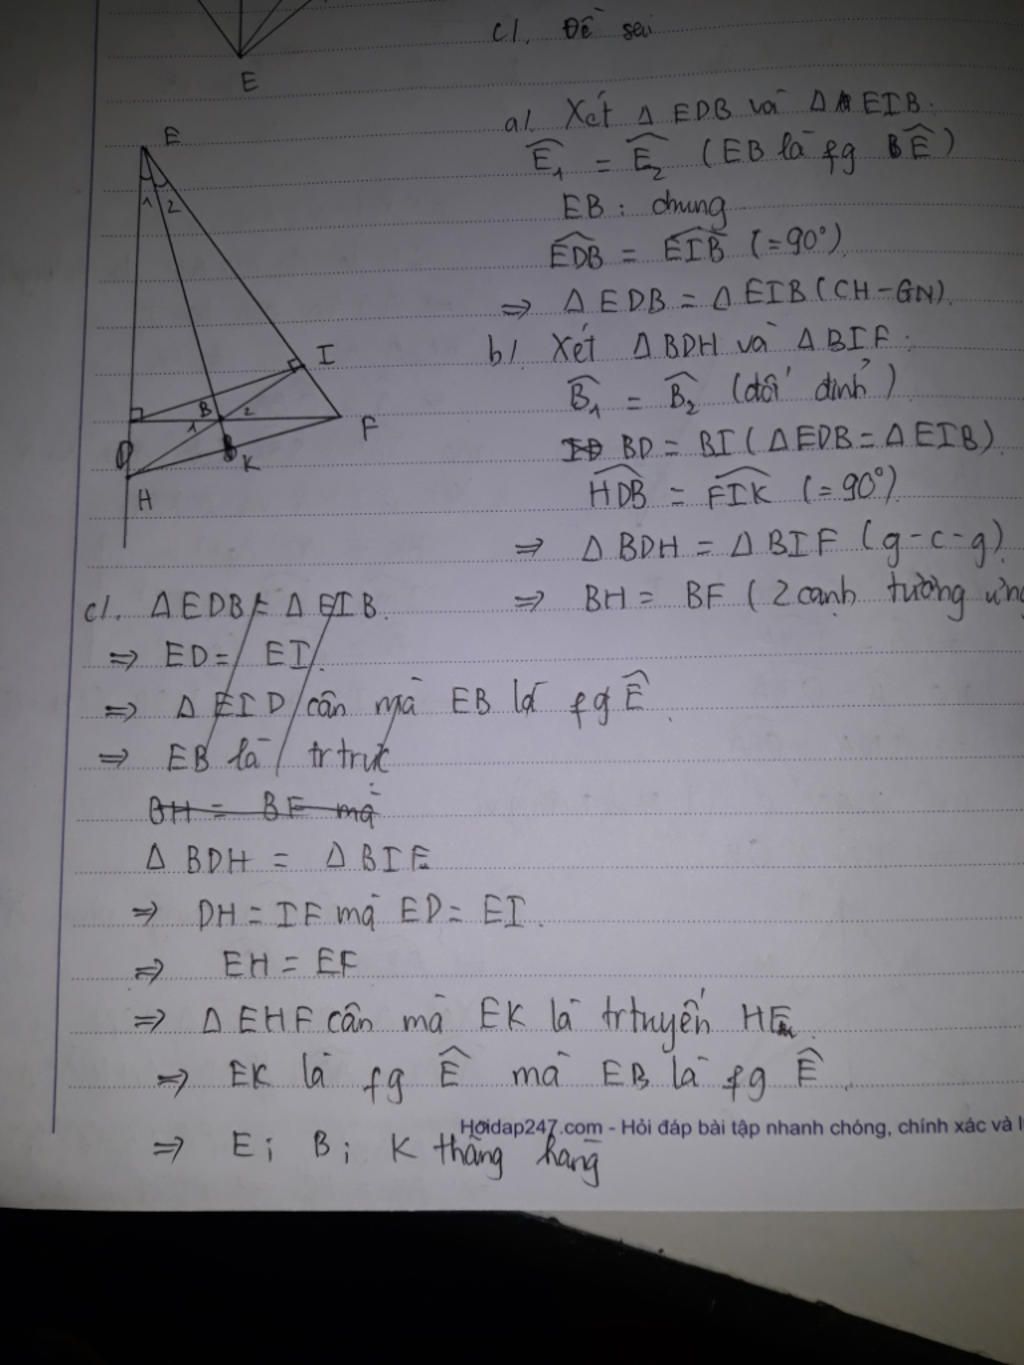 c/. Đề sai
E
a/. Xét Δ EDB và Δ EIB.
Ê₁ = Ê₂ (EB là fg Ê)
EB : chung
EDB = EIB (= 90°).
⇒ Δ EDB = Δ EIB (CH - GN).
b/. Xét Δ BDH và Δ BIF :
B₁ = B₂ (đối đỉnh)
BD = BI (Δ EDB = Δ EIB).
HDB = FIK (= 90°).
⇒ Δ BDH = Δ BIF (g-c-g).
⇒ BH = BF (2 cạnh tương ứng
E
1 2
I
B 2
1
F
D
K
H
c/. Δ EDB = Δ EIB.
⇒ ED = EI.
⇒ Δ EID cân mà EB là fg Ê.
⇒ EB là tr trực
BH = BF mà
Δ BDH = Δ BIF
⇒ DH = IF mà ED = EI.
⇒ EH = EF
⇒ Δ EHF cân mà EK là tr tuyến HF.
⇒ EK là fg Ê mà EB là fg Ê.
Hoidap247.com - Hỏi đáp bài tập nhanh chóng, chính xác và
⇒ E; B; K thẳng hàng